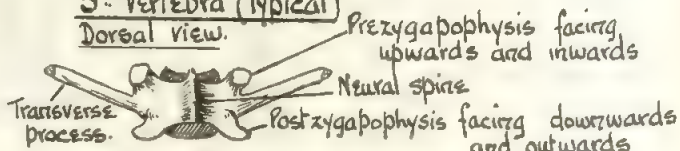 Vertebra (Typical)
Dorsal view.
Prezygapophysis facing
upwards and inwards
Neural spine
Transverse
process.
Postzygapophysis facing downwards
and outwards